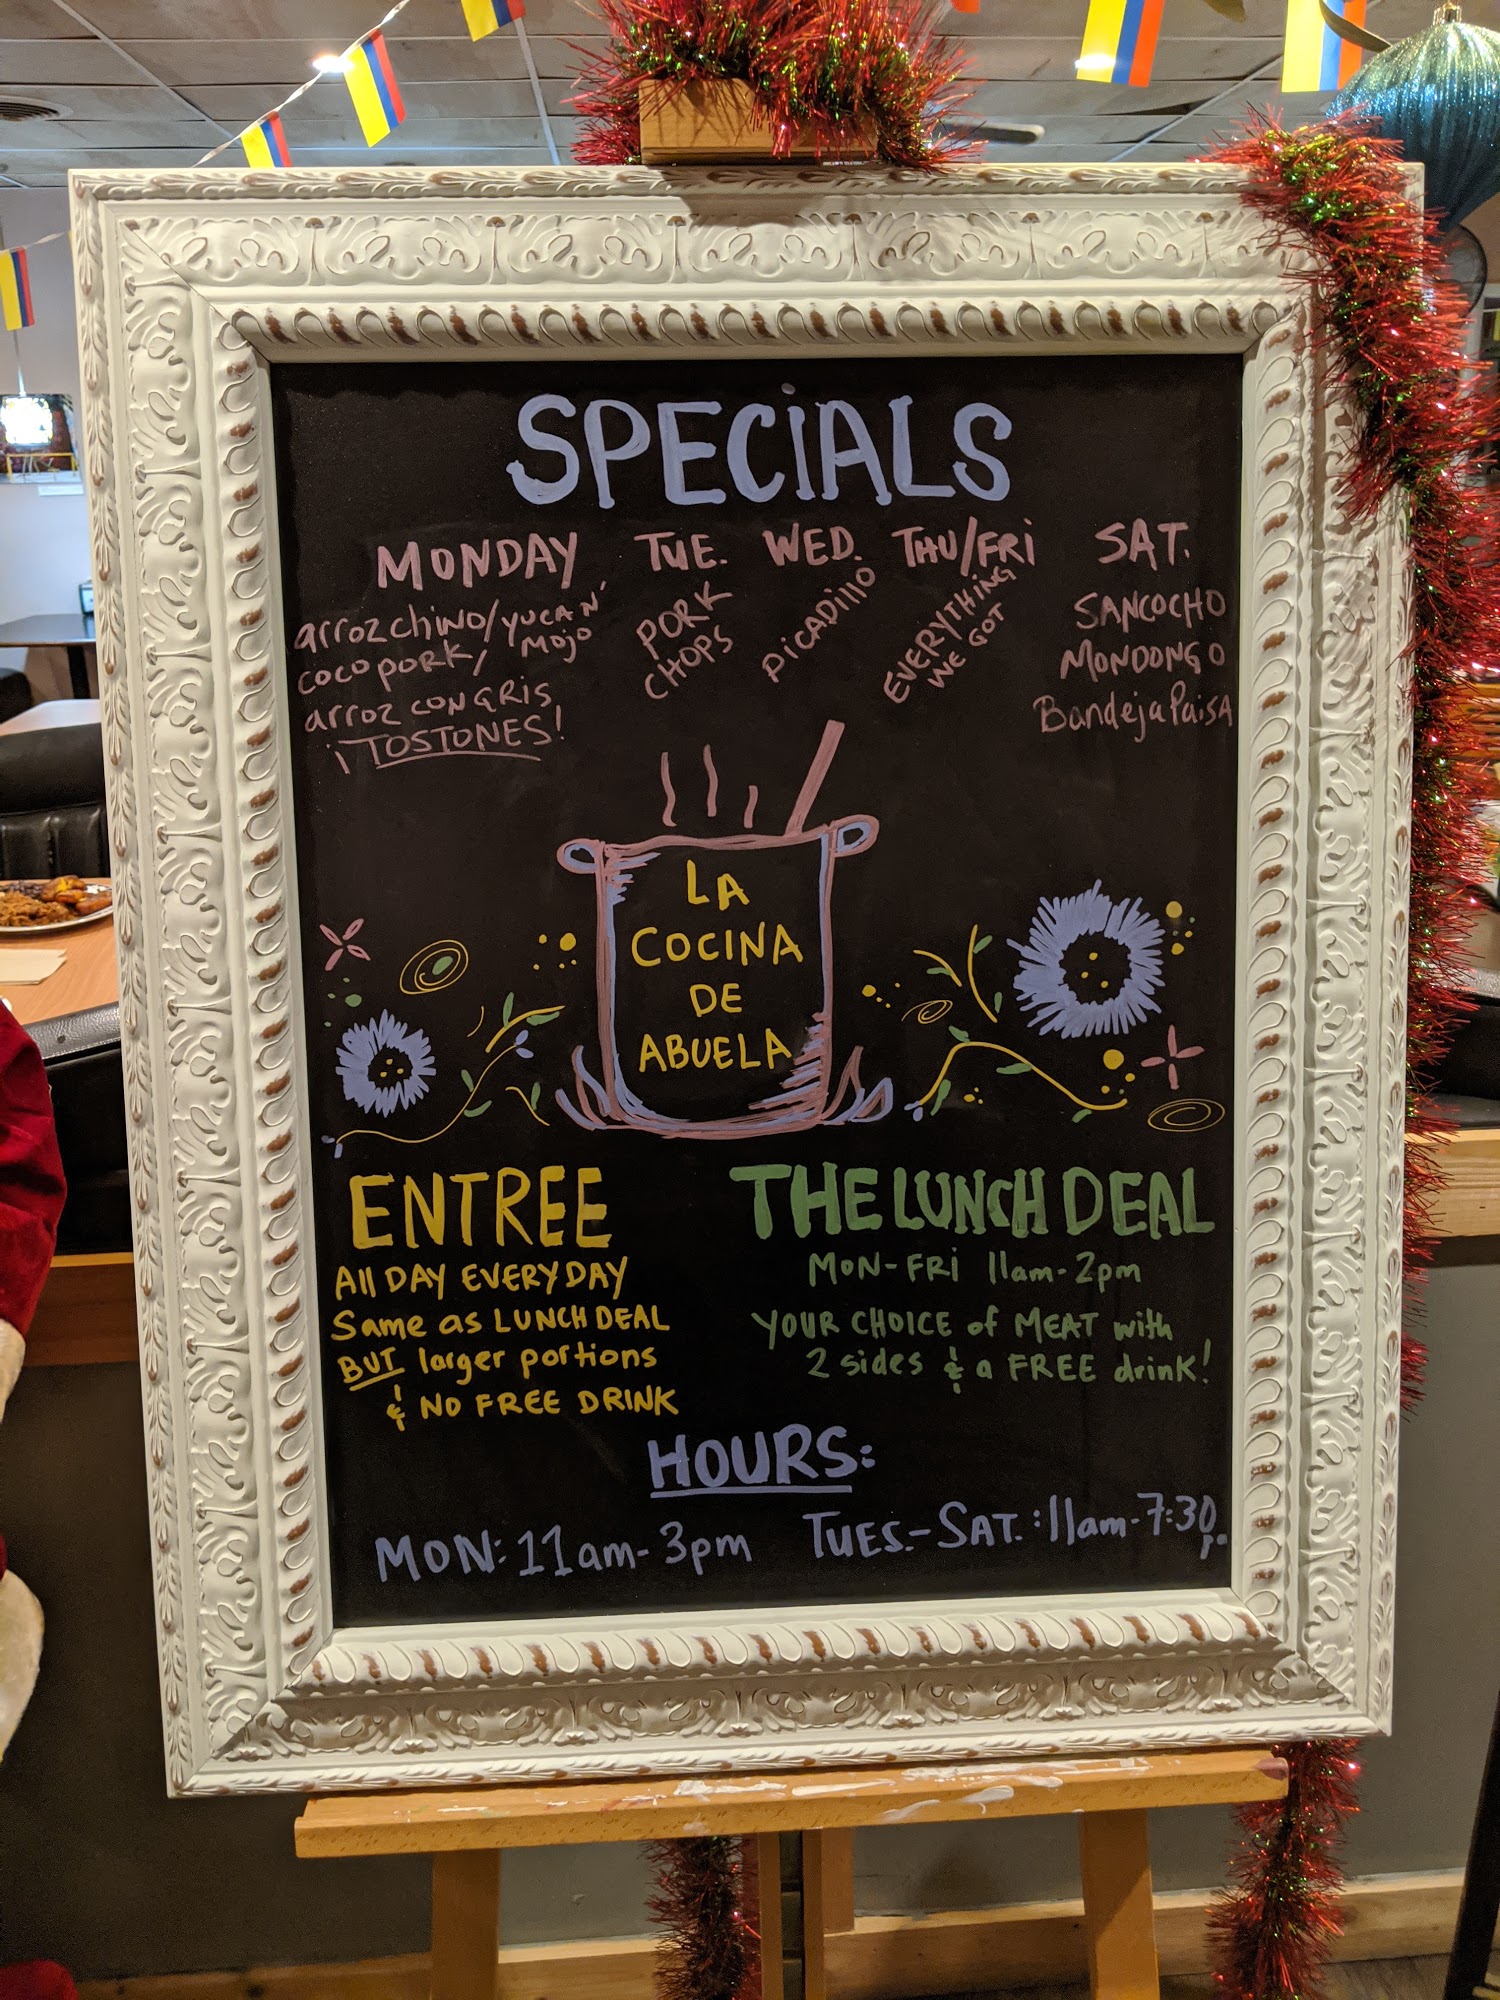 SPECiALS
MONDAY
arroz chino/yuca n'
mojo
coco pork/
arroz congris
¡TOSTONES!
TUE.
PORK
CHOPS
WED.
PiCADillo
THU/FRi
EVERYTHiNG
WE GOT
SAT.
SANCOCHO
MONDONGO
Bandeja PaisA
LA
COCINA
DE
ABUELA
ENTREE
All DAY EVERYDAY
Same as LUNCH DEAL
BUT larger portions
& NO FREE DRINK
THE LUNCH DEAL
MON-FRi 11am-2pm
YOUR CHOICE of MEAT with
2 sides & a FREE drink!
HOURS:
MON: 11am-3pm
TUES.-SAT.: 11am-7:30
p.